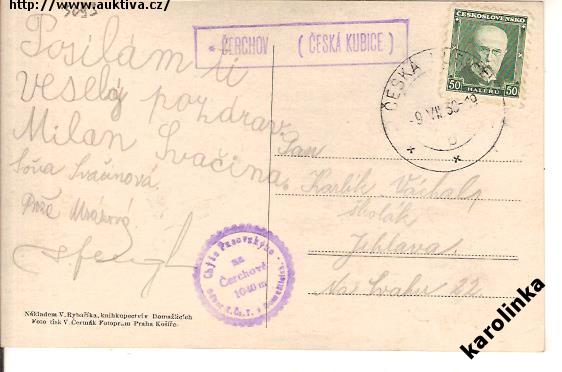 http://www.auktiva.cz/
Posílám ti
veselý pozdrav
Milan Svačina
Soňa Svačinová
* ČERCHOV (ČESKÁ KUBICE)
ČESKOSLOVENSKO
50 HALÉŘŮ 50
ČESKÁ
Pan
Karlík Váchal,
školák
Jihlava
Na Svahu 22
Chýše Pasovského
na
Čerchově
1040 m
Nákladem V. Rybaříka, knihkupectví v Domažlicích
Foto tisk V. Čermák Fotopram Praha Košíře.
karolinka